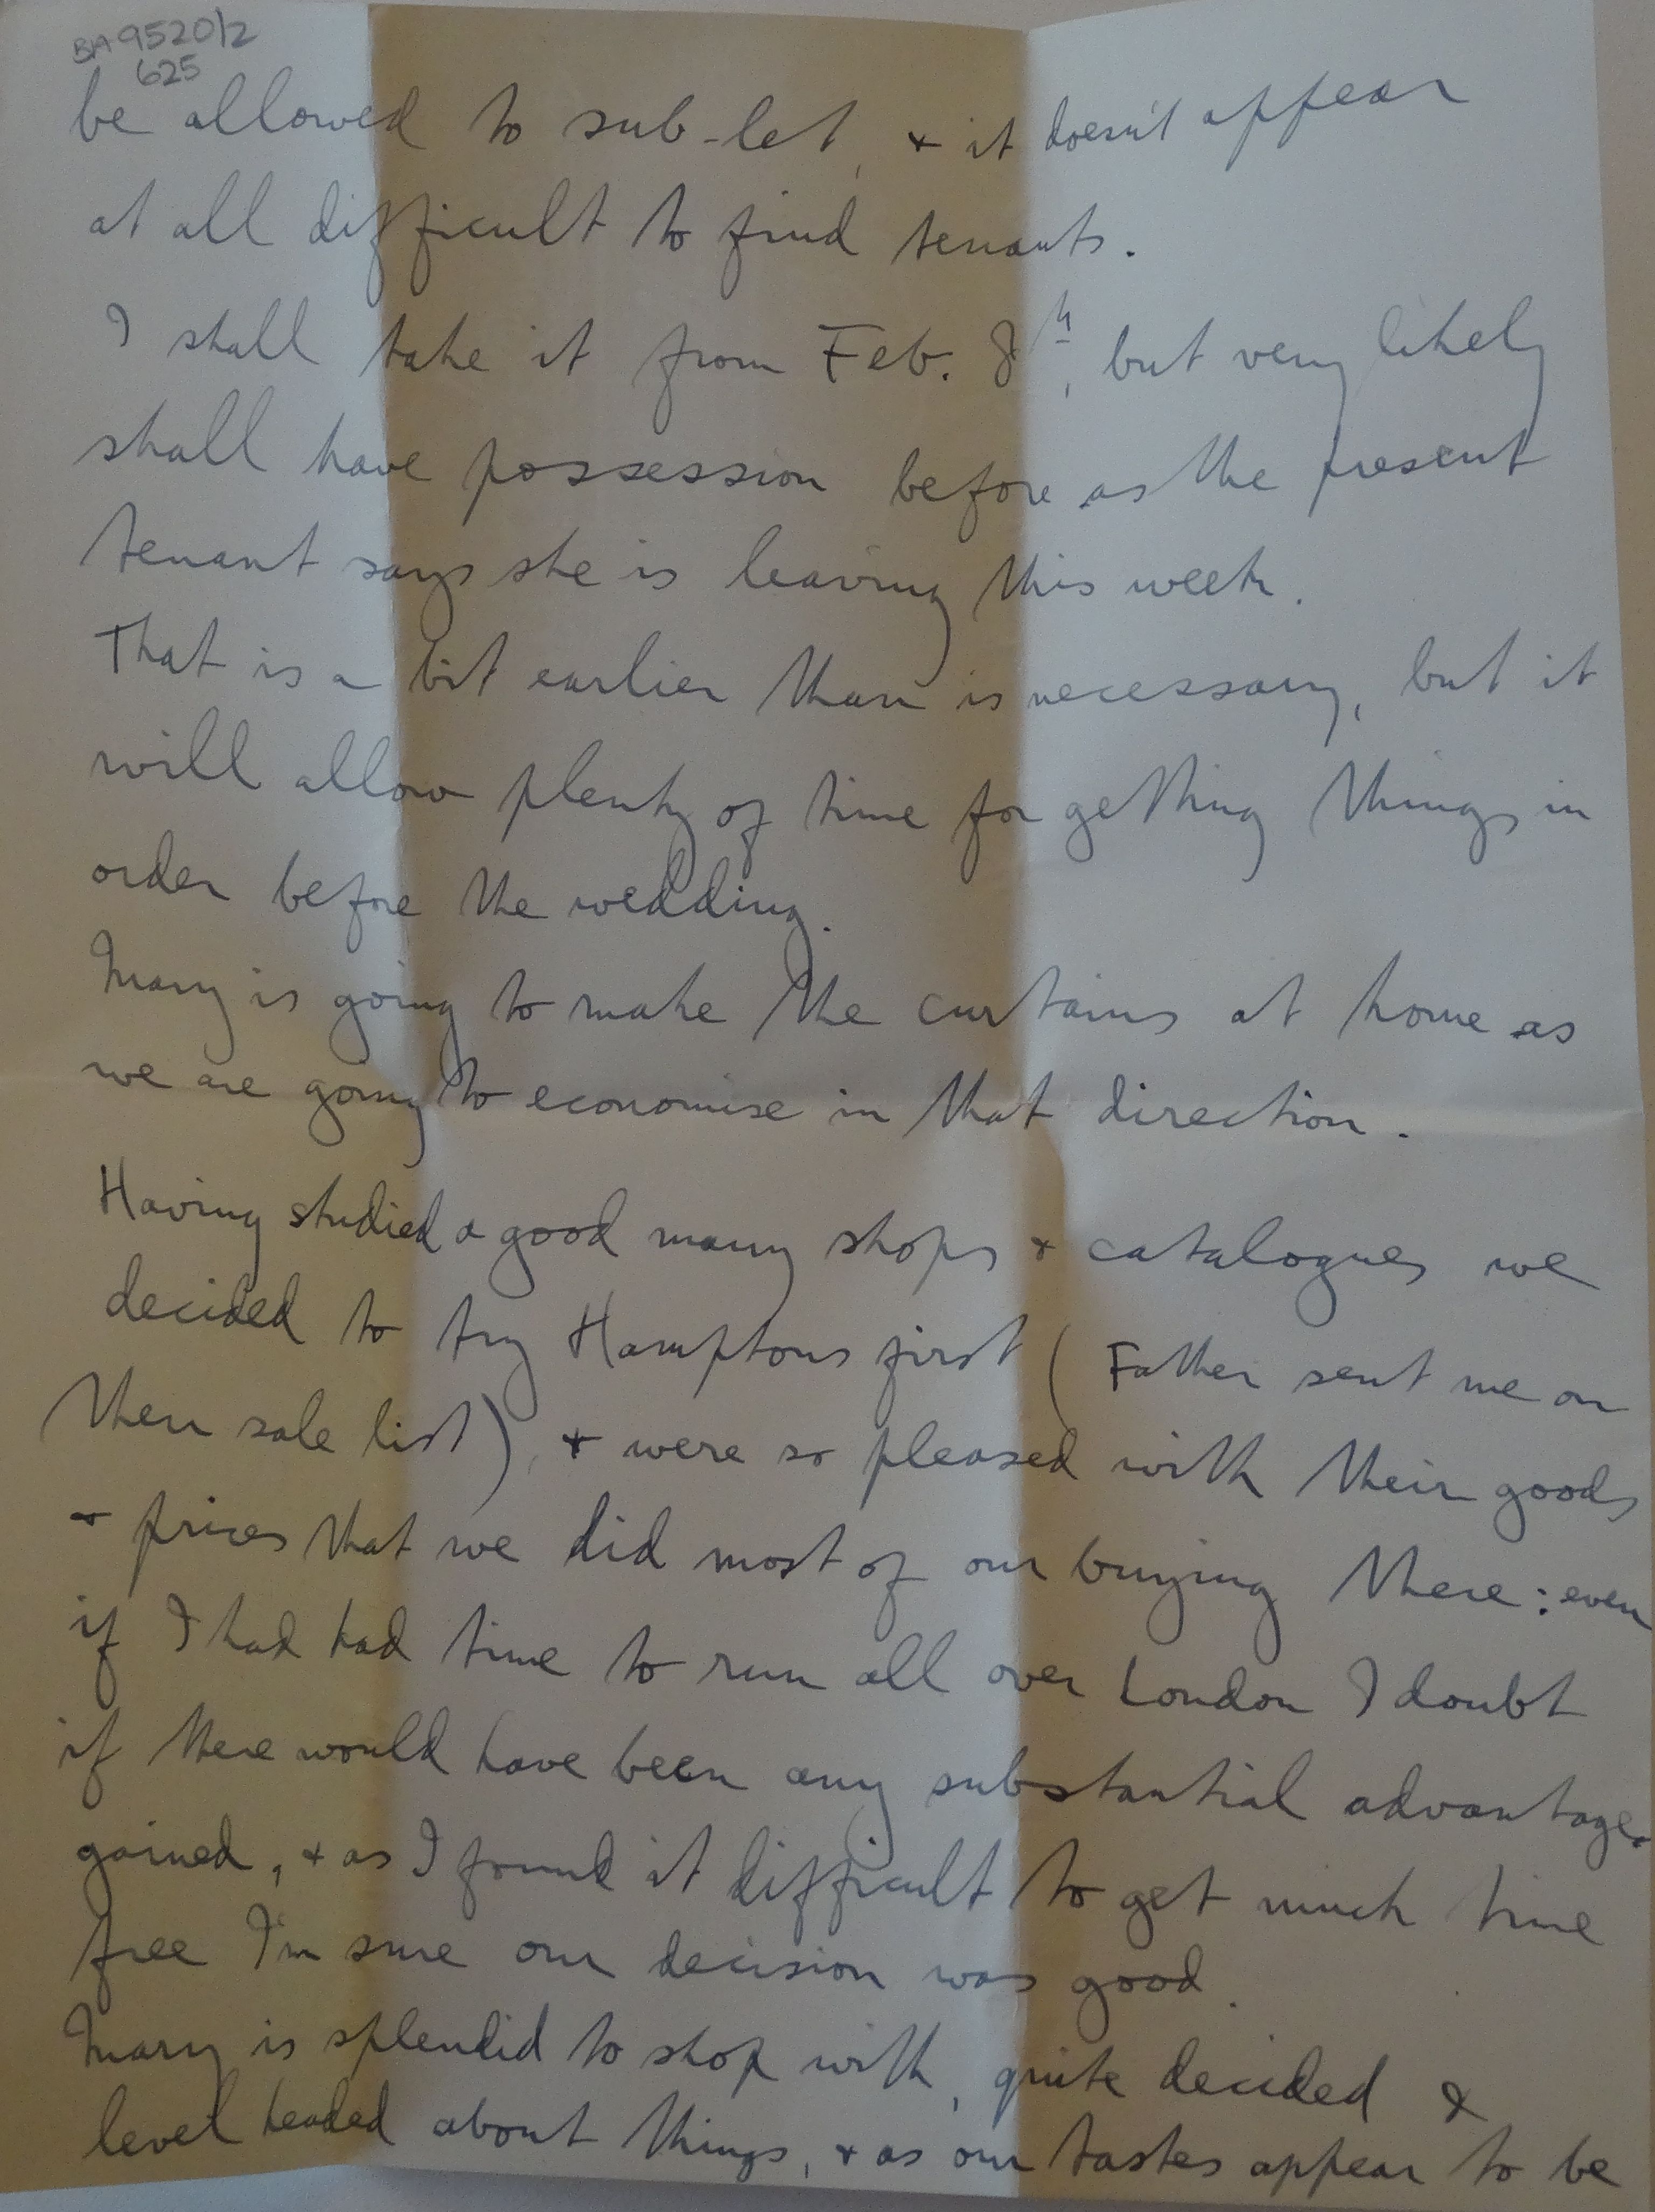 BA9520/2
625
be allowed to sub-let, & it doesn't appear
at all difficult to find tenants.
I shall take it from Feb. 8th, but very likely
shall have possession before as the present
tenant says she is leaving this week.
That is a bit earlier than is necessary, but it
will allow plenty of time for getting things in
order before the wedding.
Mary is going to make the curtains at home as
we are going to economise in that direction.
Having studied a good many shops & catalogues we
decided to try Hamptons first (Father sent me on
their sale list), & were so pleased with their goods
& prices that we did most of our buying there: even
if I had had time to run all over London I doubt
if there would have been any substantial advantage
gained, & as I found it difficult to get much time
free I'm sure our decision was good.
Mary is splendid to shop with, quite decided &
level headed about things, & as our tastes appear to be